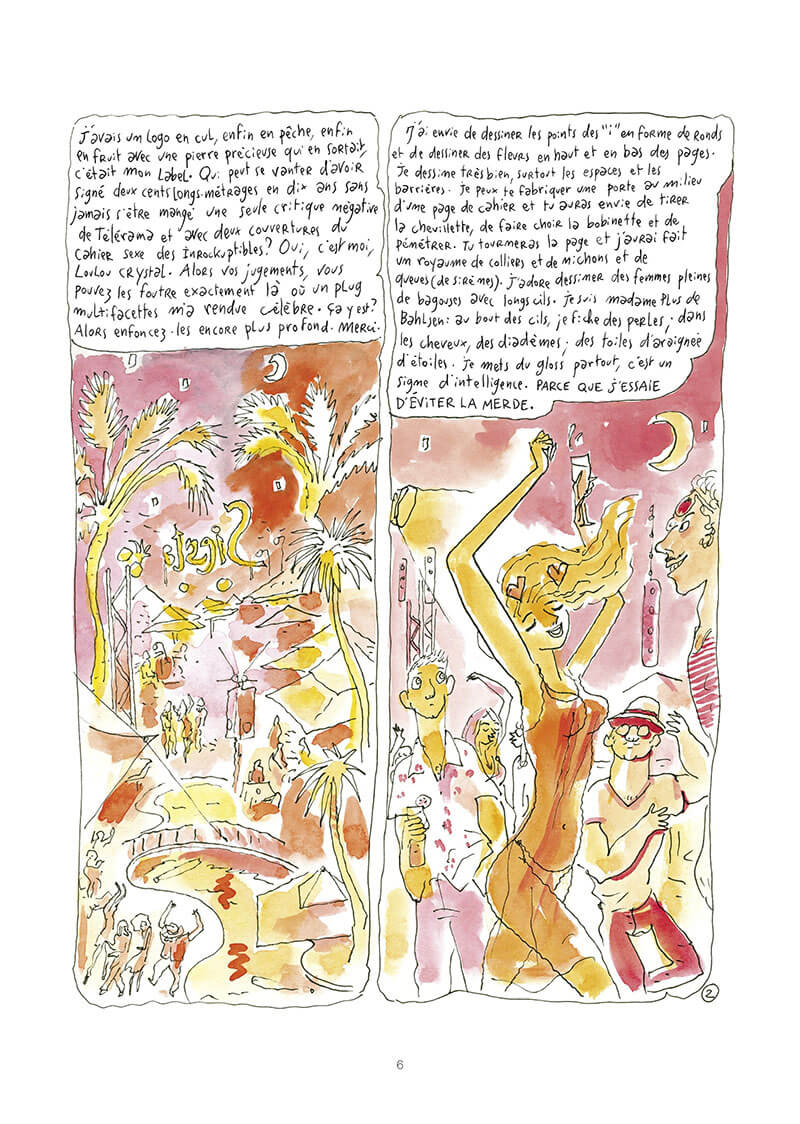 j'avais un logo en cul, enfin en pêche, enfin
en fruit avec une pierre précieuse qui en sortait,
c'était mon label. Qui peut se vanter d'avoir
signé deux cents longs-métrages en dix ans sans
jamais s'être mangé une seule critique négative
de Télérama et avec deux couvertures du
cahier sexe des Inrockuptibles? Oui, c'est moi,
Loulou Crystal. Alors vos jugements, vous
pouvez les foutre exactement là où un plug
multifacettes m'a rendue célèbre. Ça y est?
Alors enfoncez-les encore plus profond. Merci.
J'ai envie de dessiner les points des "i" en forme de ronds
et de dessiner des fleurs en haut et en bas des pages.
Je dessine très bien, surtout les espaces et les
barrières. Je peux te fabriquer une porte au milieu
d'une page de cahier et tu auras envie de tirer
la chevillette, de faire choir la bobinette et de
pénétrer. Tu tourneras la page et j'aurai fait
un royaume de colliers et de nichons et de
queues (de sirènes). J'adore dessiner des femmes pleines
de bagouses avec longs cils. Je suis madame Plus de
Bahlsen: au bout des cils, je fiche des perles; dans
les cheveux, des diadèmes; des toiles d'araignée
d'étoiles. Je mets du gloss partout, c'est un
signe d'intelligence. PARCE QUE J'ESSAIE
D'ÉVITER LA MERDE.
2
6